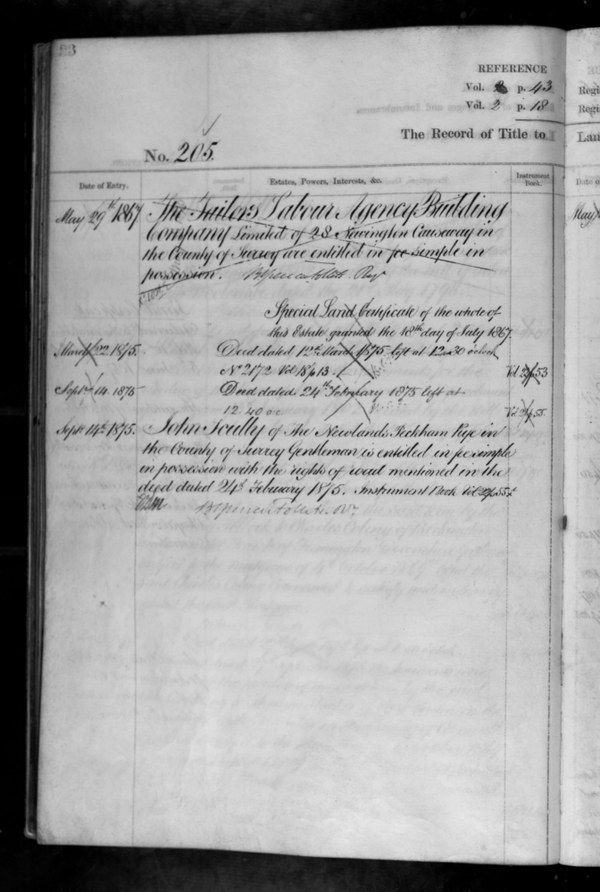 23
REFERENCE
Vol. p. 43
Vol. 2 p. 18
The Record of Title to
No. 205.
Date of Entry.
Estates, Powers, Interests, &c.
Instrument Book.
May 29th 1867
The Tailors Labour Agency Building
Company Limited of 28 Newington Causeway in
the County of Surrey are entitled in fee simple in
possession.
Special Land Certificate of the whole of
this Estate granted the 18th day of July 1867.
March 1875.
Deed dated 12th March 1875 left at 12.30 o'clock
No 2172 Vol 18 p 13
Vol p 53
Septber 14. 1875
Deed dated 24th February 1875 left at
12.40
Vol p 55.
Septr 14th 1875.
John Scully of The Newlands Peckham Rye in
the County of Surrey Gentleman is entitled in fee simple
in possession with the rights of road mentioned in the
deed dated 24th February 1875. Instrument Book Vol p 55
Regis
Regis
Lan
Date of
May